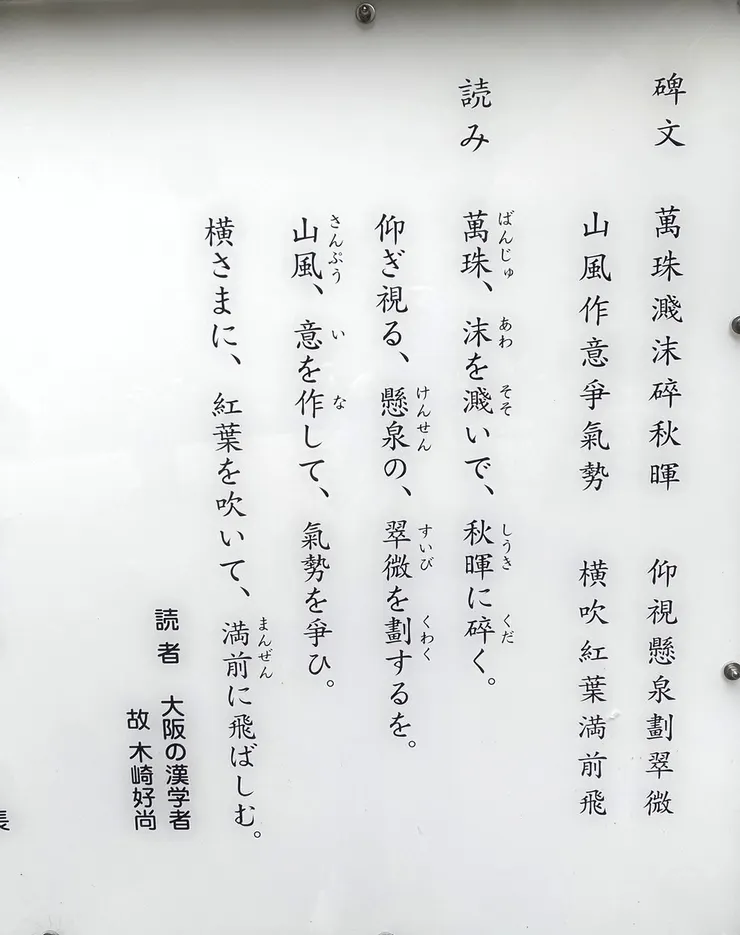 碑文　萬珠濺沫碎秋暉　仰視懸泉劃翠微
山風作意爭氣勢　横吹紅葉満前飛
読み　萬珠、沫を濺いで、秋暉に碎く。
ばんじゅ　あわ　そそ　しうき　くだ
仰ぎ視る、懸泉の、翠微を劃するを。
けんせん　すいび　くわく
山風、意を作して、氣勢を爭ひ。
さんぷう　い　な
横さまに、紅葉を吹いて、満前に飛ばしむ。
まんぜん
読者　大阪の漢学者
故　木崎好尚
長